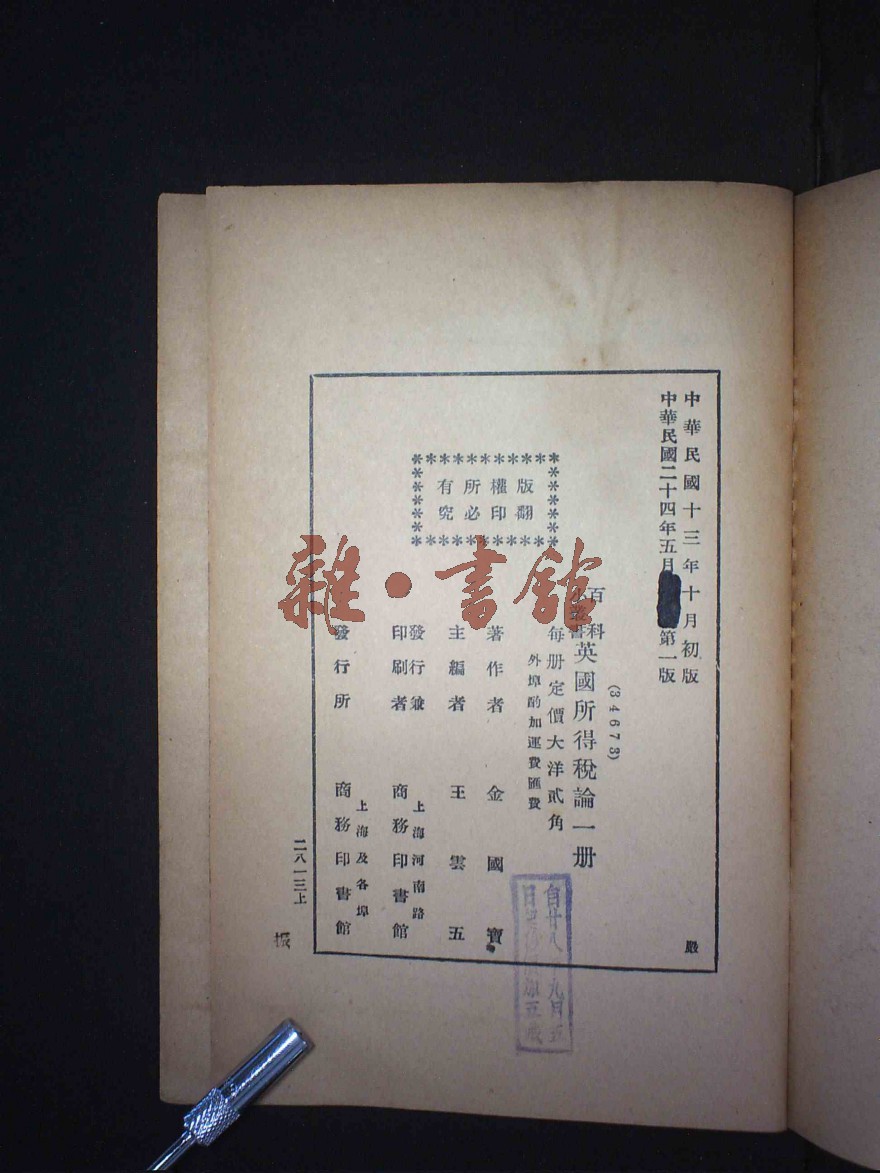 中華民國十三年十月初版
中華民國二十四年五月
第一版
(34673)
百科
小叢書
英國所得稅論一册
每册定價大洋貳角
外埠酌加運費匯費
版權所有
翻印必究
著作者 金國寶
主編者 王雲五
發行兼
印刷者
上海河南路
商務印書館
發行所
上海及各埠
商務印書館
嚴
二八一三上
振
雜·書館